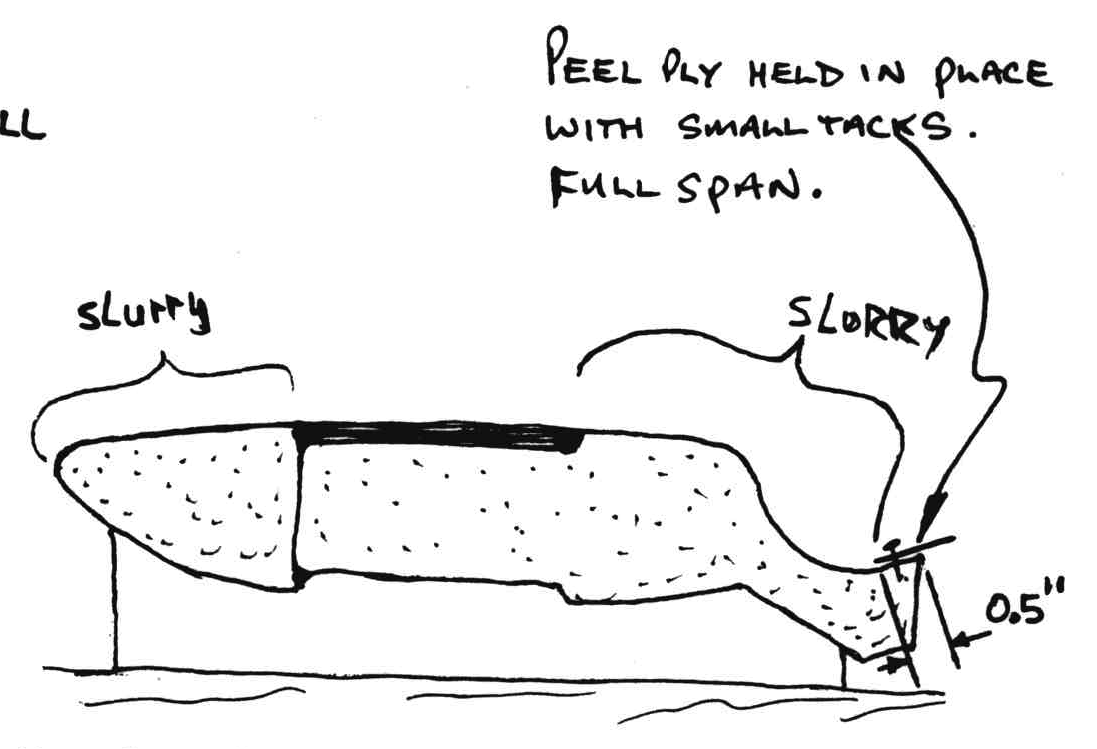 PEEL PLY HELD IN PLACE
LL
WITH SMALL TACKS.
FULL SPAN.
SLURRY
SLORRY
0.5"